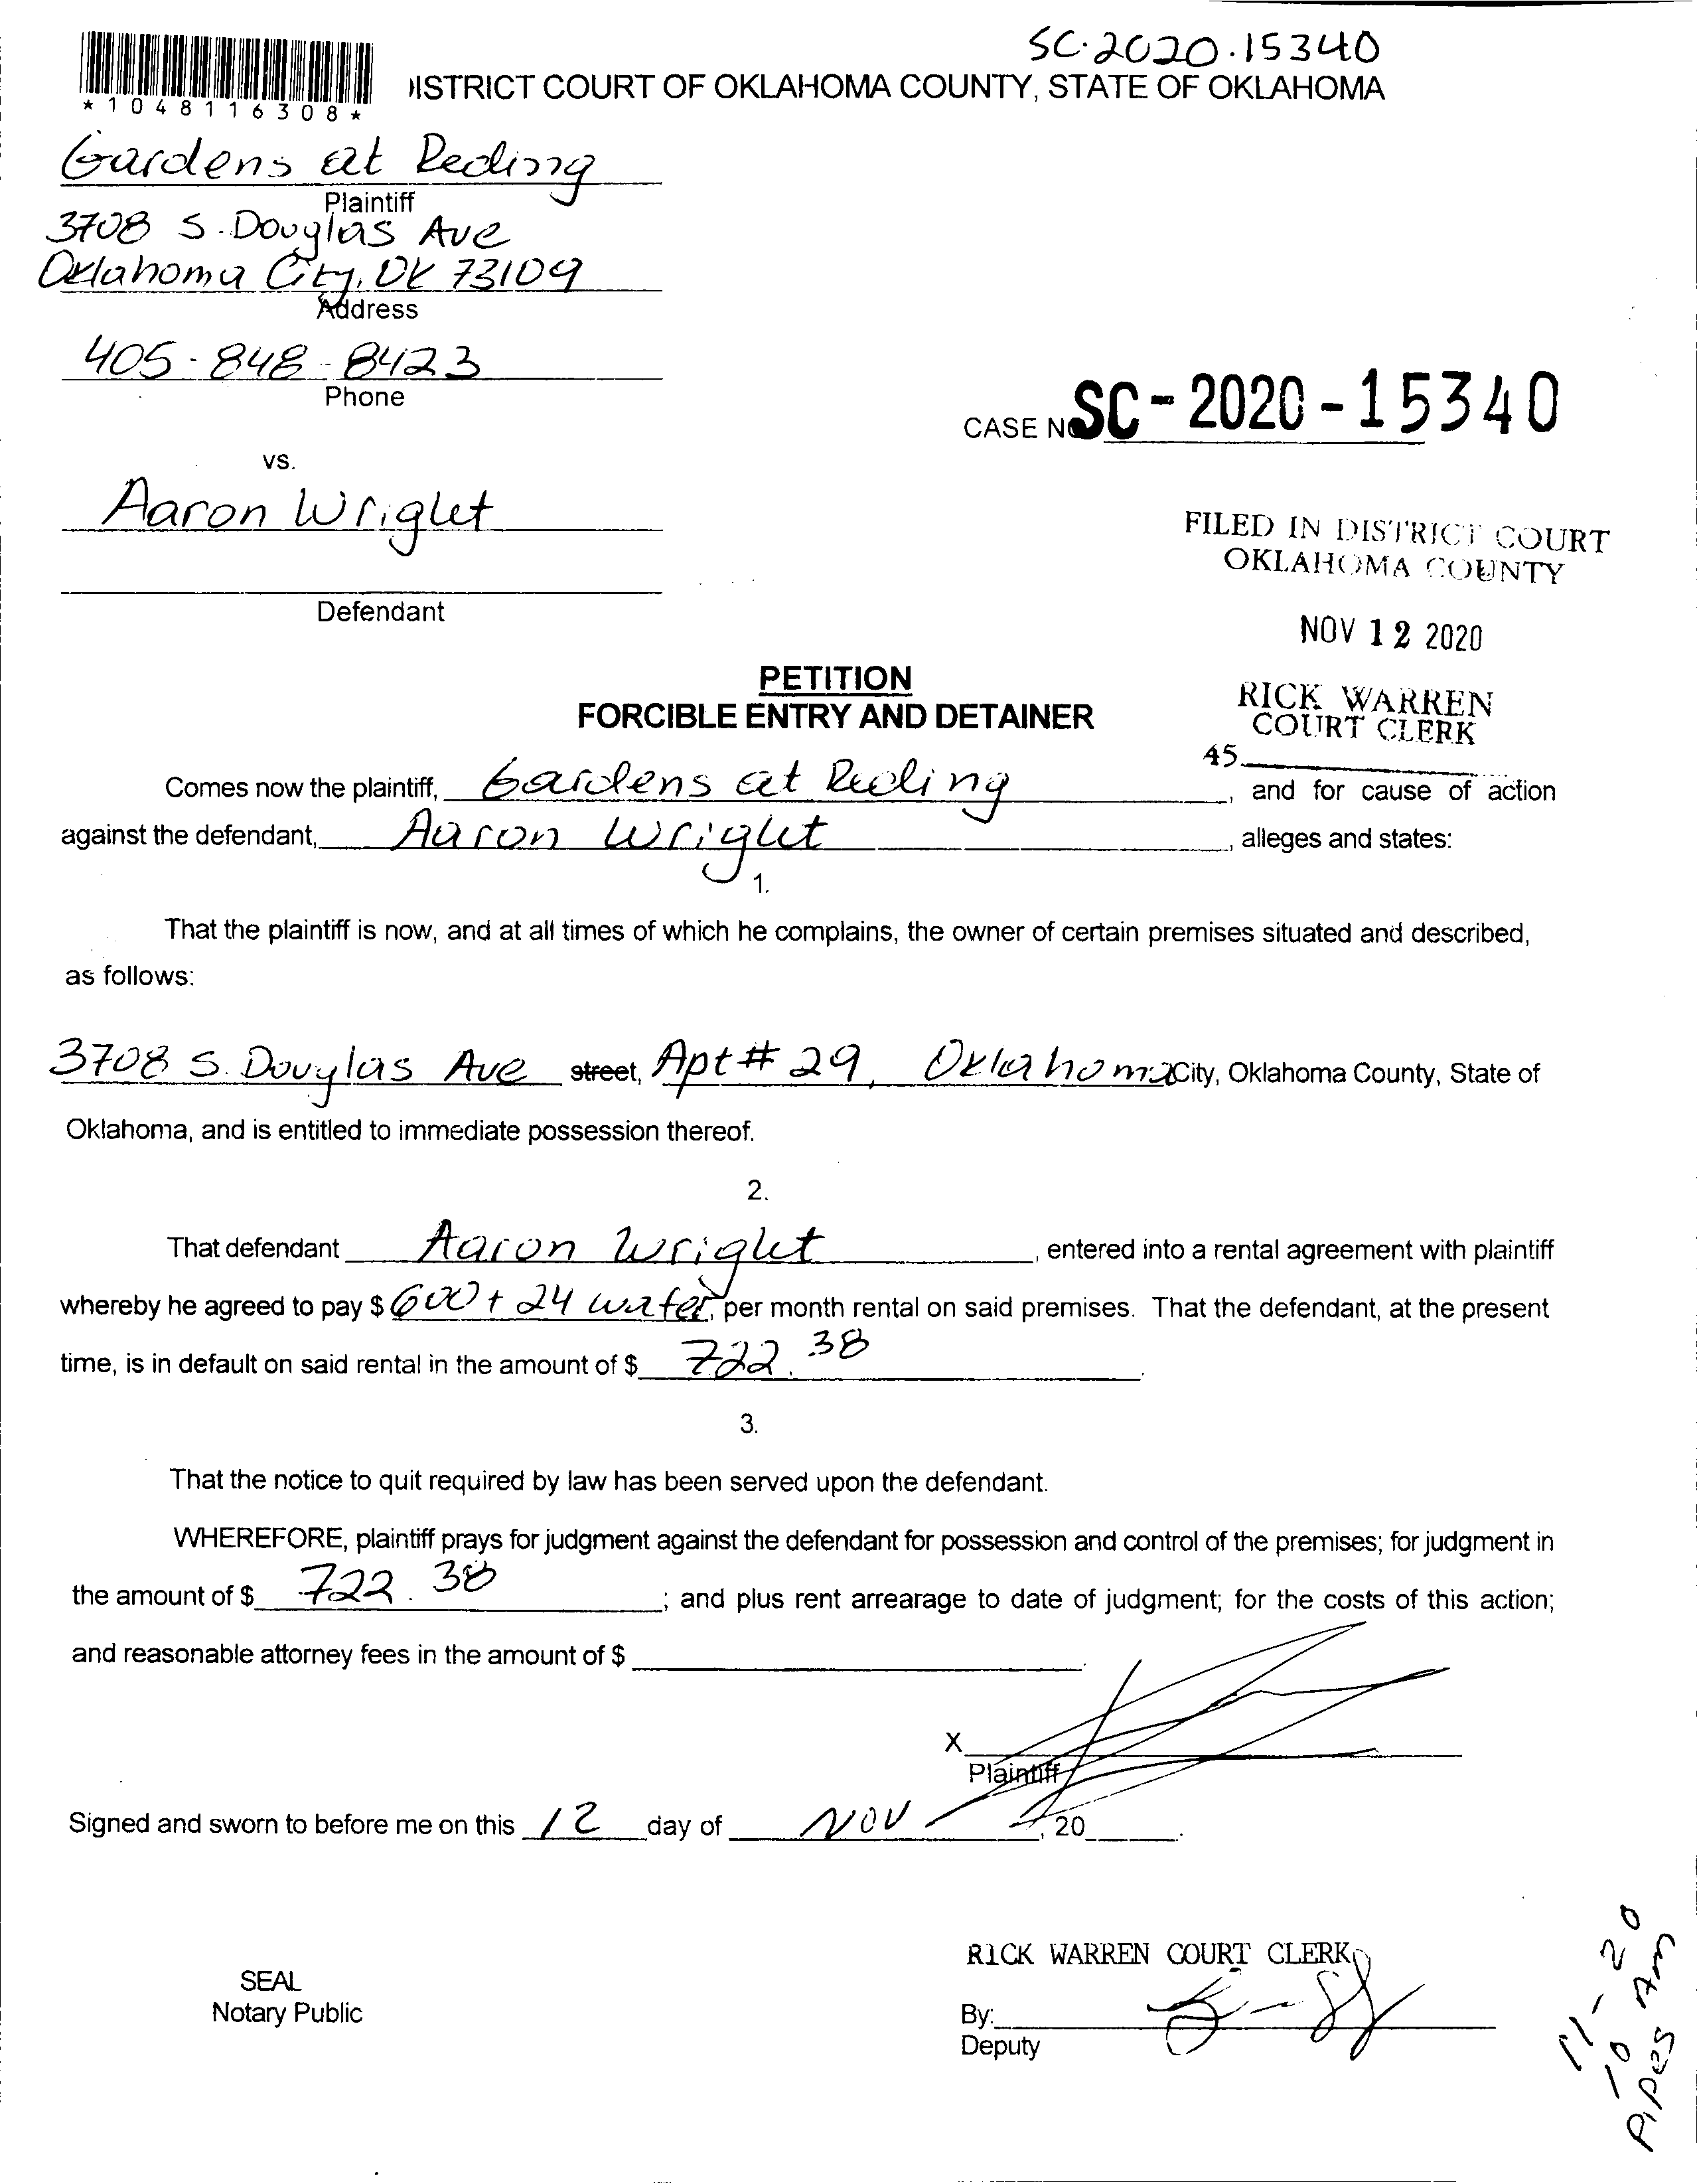 SC.2020.15340
*1048116308*
ISTRICT COURT OF OKLAHOMA COUNTY, STATE OF OKLAHOMA
Gardens at Reding
Plaintiff
3708 S. Douglas Ave
Oklahoma City, OK 73109
Address
405-848-8423
Phone
CASE NO SC-2020-15340
vs.
Aaron Wright
Defendant
FILED IN DISTRICT COURT
OKLAHOMA COUNTY
NOV 12 2020
RICK WARREN
COURT CLERK
45
PETITION
FORCIBLE ENTRY AND DETAINER
Comes now the plaintiff, Gardens at Reding, and for cause of action
against the defendant, Aaron Wright, alleges and states:
1.
That the plaintiff is now, and at all times of which he complains, the owner of certain premises situated and described,
as follows:
3708 S. Douglas Ave street, Apt # 29, Oklahoma City, Oklahoma County, State of
Oklahoma, and is entitled to immediate possession thereof.
2.
That defendant Aaron Wright, entered into a rental agreement with plaintiff
whereby he agreed to pay $ 600 + 24 water, per month rental on said premises. That the defendant, at the present
time, is in default on said rental in the amount of $ 722.38.
3.
That the notice to quit required by law has been served upon the defendant.
WHEREFORE, plaintiff prays for judgment against the defendant for possession and control of the premises; for judgment in
the amount of $ 722.38; and plus rent arrearage to date of judgment; for the costs of this action;
and reasonable attorney fees in the amount of $ .
X
Plaintiff
Signed and sworn to before me on this 12 day of NOV, 20 .
SEAL
Notary Public
RICK WARREN COURT CLERK
By:
Deputy
11-20
10 Am
Pipes